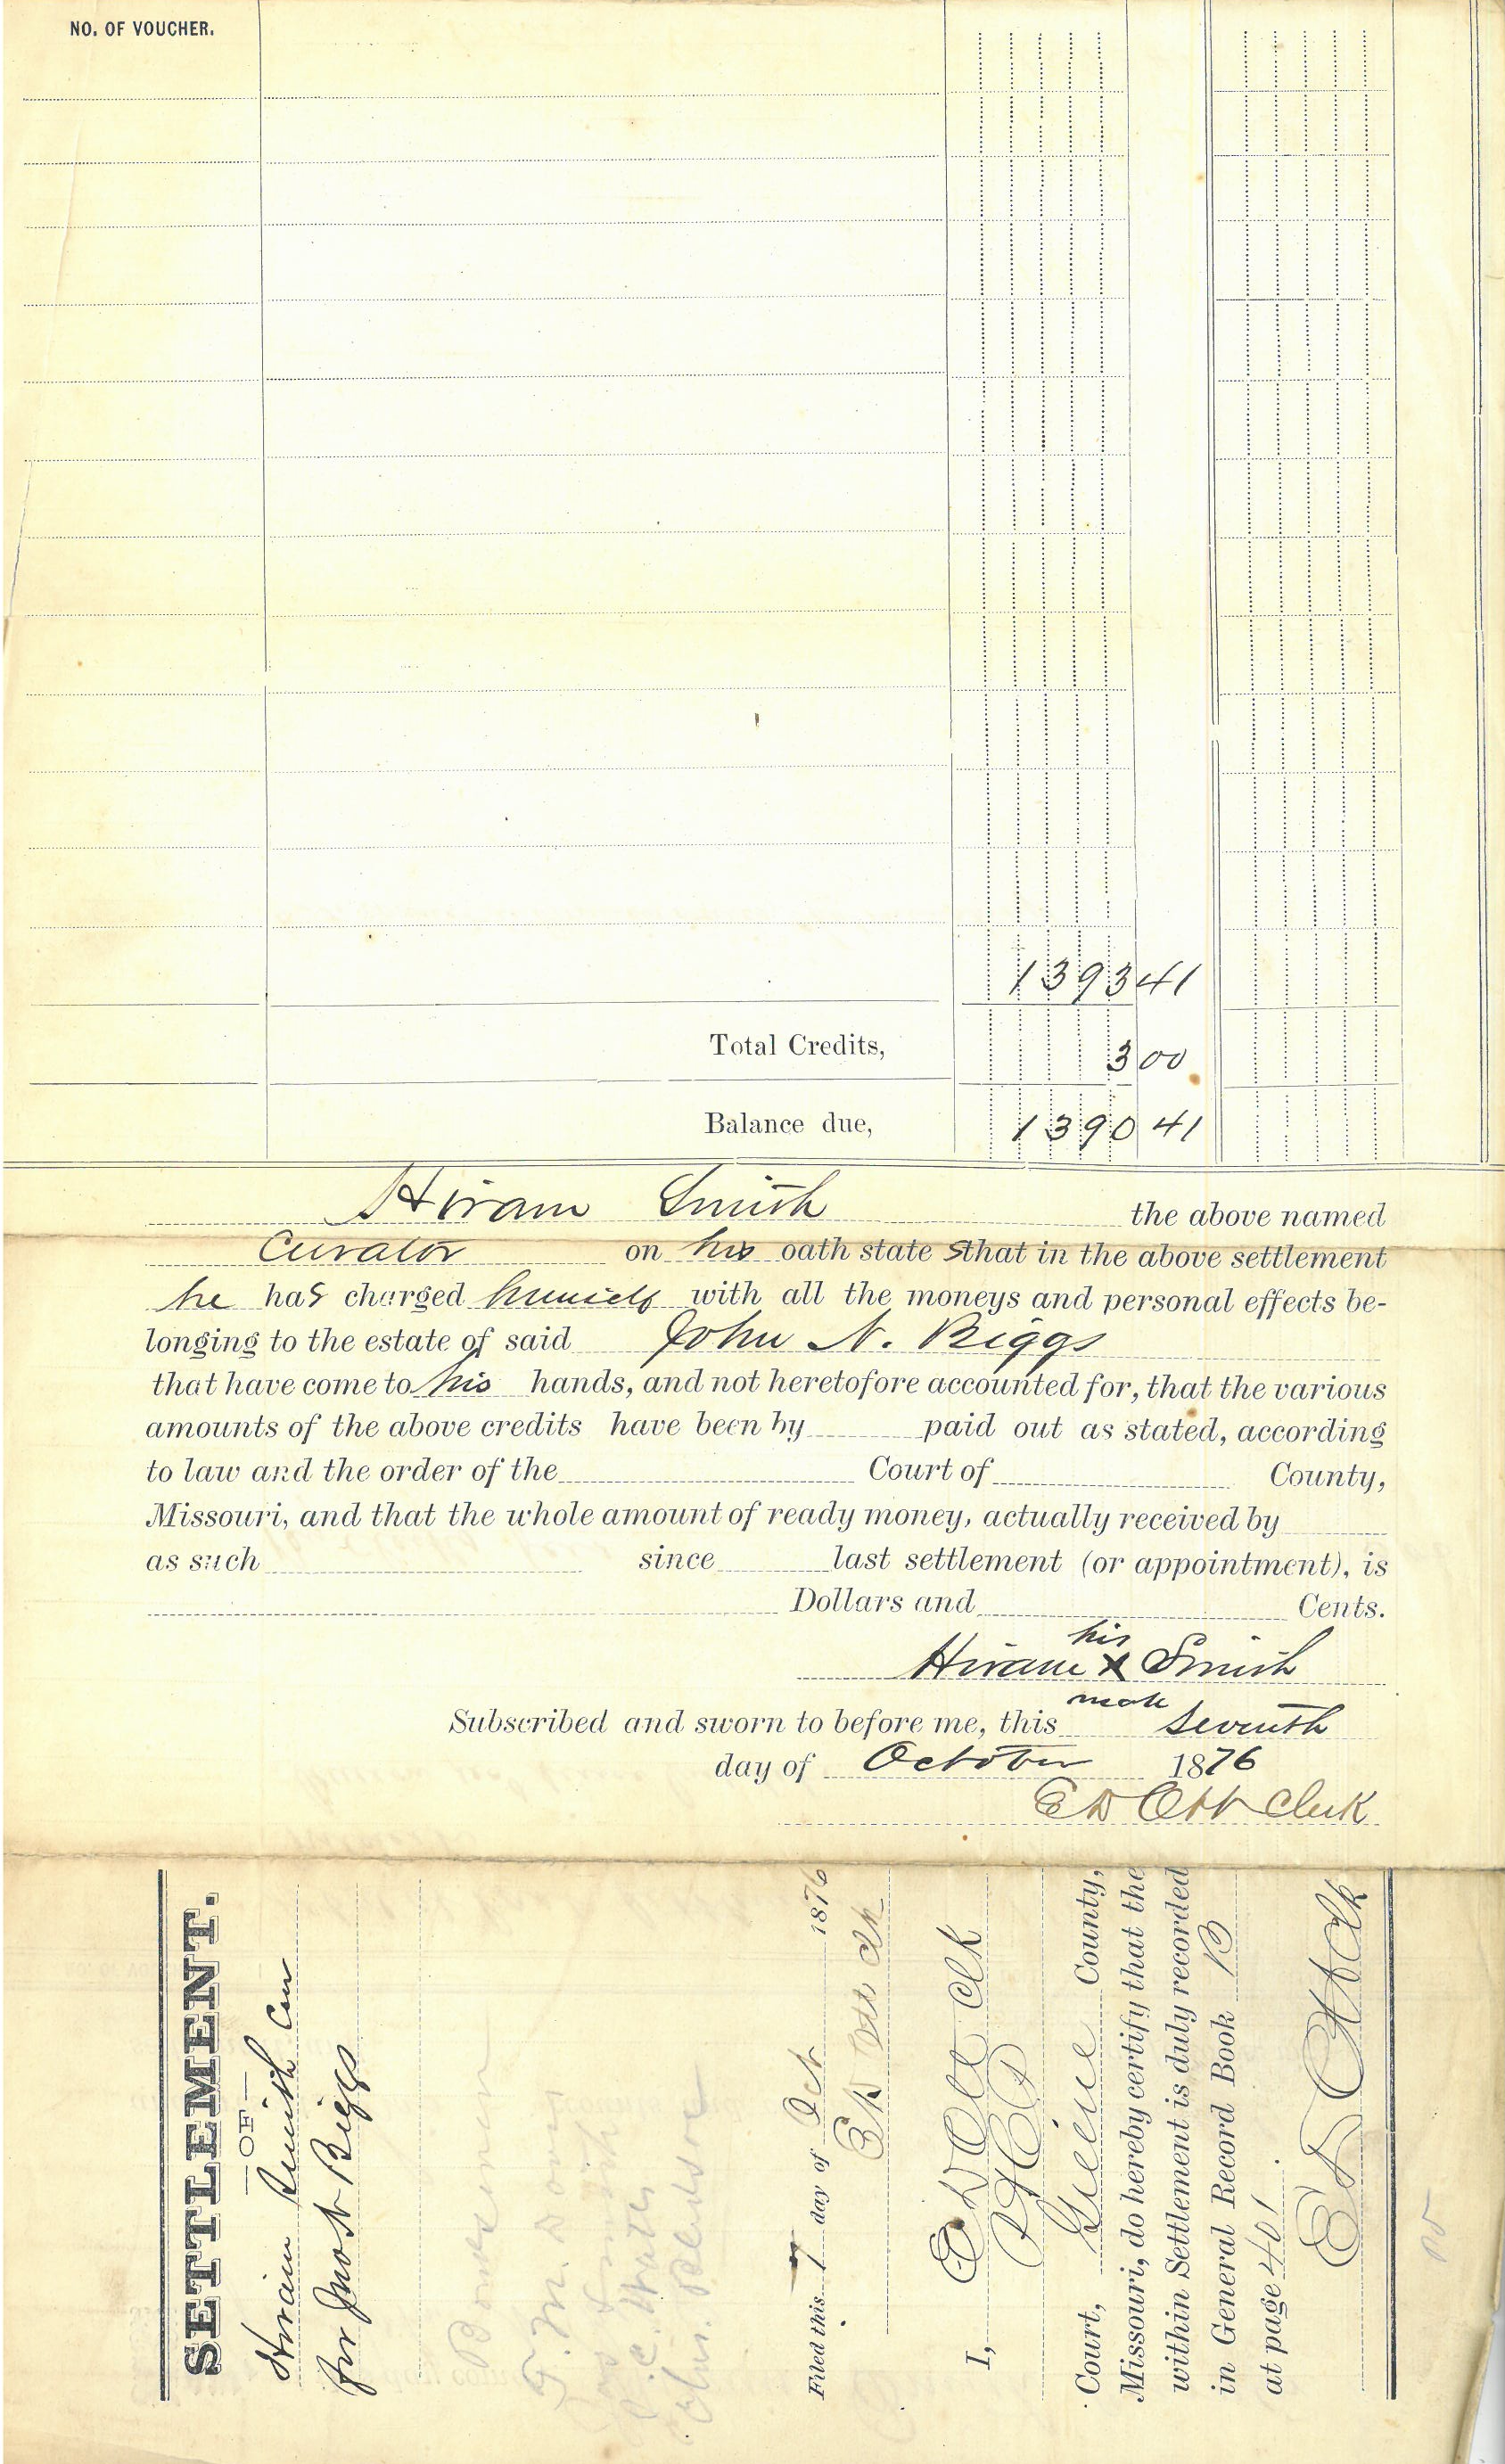 NO. OF VOUCHER.
1393 41
Total Credits, 3 00
Balance due, 1390 41
Hiram Smith the above named
Curator on his oath state s that in the above settlement
he has charged himself with all the moneys and personal effects be-
longing to the estate of said John N. Biggs
that have come to his hands, and not heretofore accounted for, that the various
amounts of the above credits have been by paid out as stated, according
to law and the order of the Court of County,
Missouri, and that the whole amount of ready money, actually received by
as such since last settlement (or appointment), is
Dollars and Cents.
his
Hiram X Smith
mark
Subscribed and sworn to before me, this seventh
day of October 1876
E D Ott Clerk
SETTLEMENT.
—OF—
Hiram Smith Cur
for Jno N Biggs
Filed this 7 day of Oct 1876
E D Ott Clk
I, E D Ott Clk
Court, Greene County,
Missouri, do hereby certify that the
within Settlement is duly recorded
in General Record Book B
at page 401.
E D Ott Clk